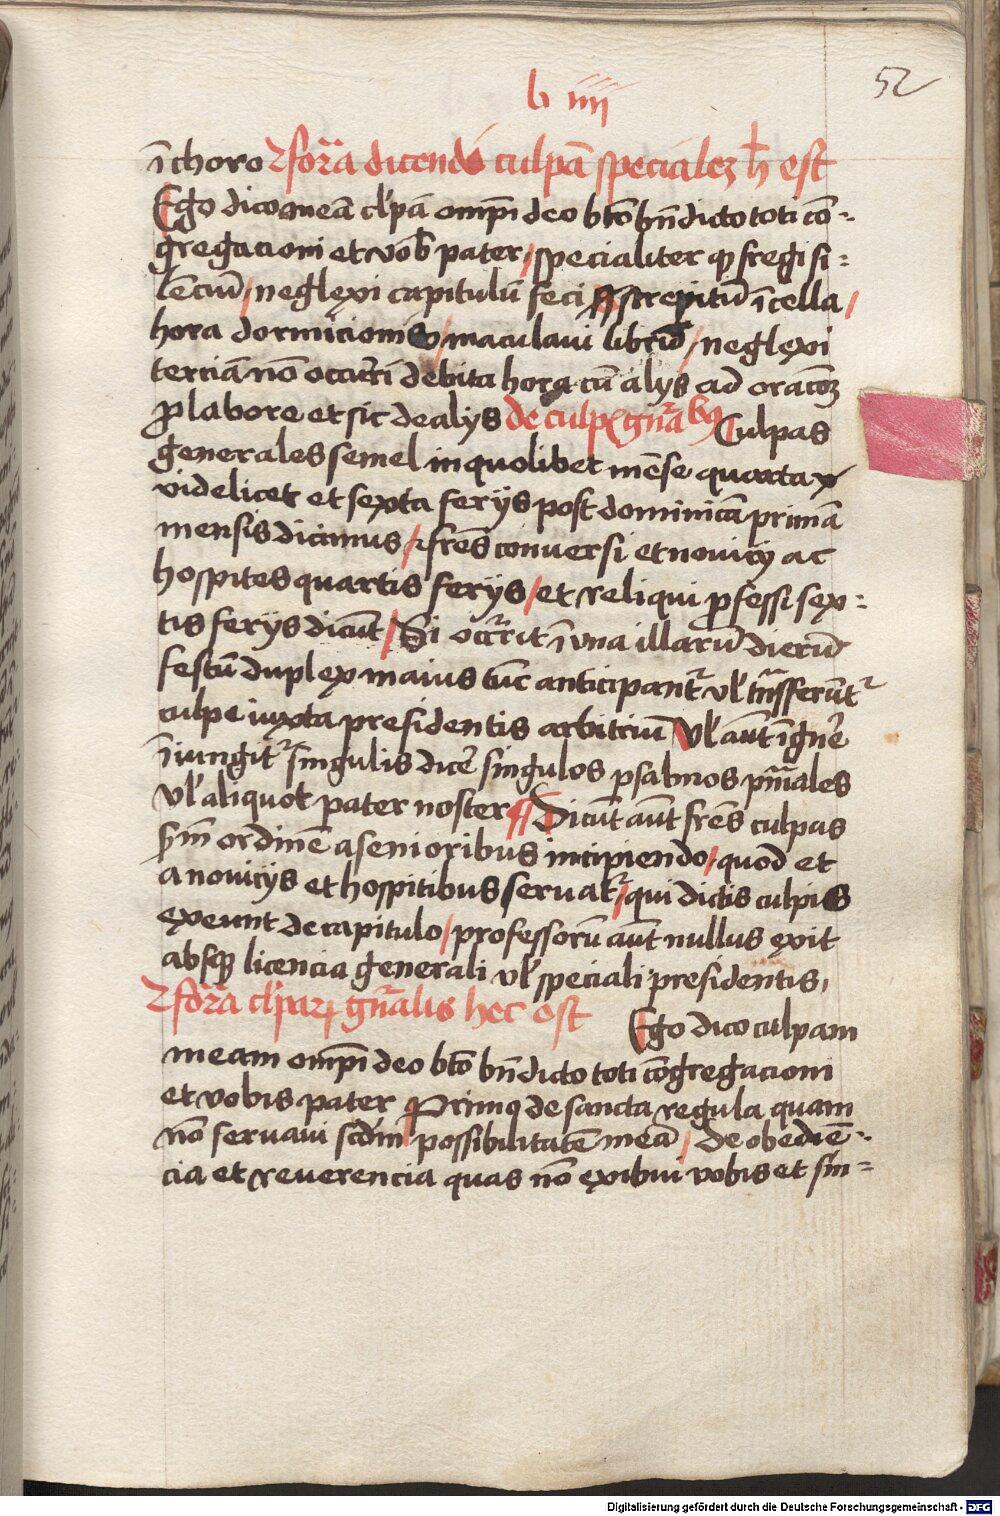 52
b iiii
ī choro Rfor̄a dicendi culpā speciales h̄ est
Ego dico meā cl'pā omp̄i deo btō bn̄dicto toti cō-
gregacioni et vob' pater / specialiter qͥ fregi si-
lēciū / neglexi capitulū feci strepitū ī cella /
hora dormicionis / maculavi librū / neglexi
terciā nō occurri debita hora cū alijs ad oracōꝫ
ꝓ labore et sic de alijs de culpis gn̄alibꝯ Culpas
generales semel in quolibet mēse quarta
videlicet et sexta ferijs post dominicā primā
mensis dicimus / fr̄es conversi et novicij ac
hospites quartis ferijs / et reliqui ꝓfessi sex-
tis ferijs dicūt / Si occ'rit ī vna illarū dierū
festū duplex maius tūc anticipant' vl' trāsferūt'
culpe iuxta presidentis arbitriū vl' aūt ī gn̄e
īiungit' singulis dicē singulos psalmos pn̄iales
vl' aliquot pater noster Dicūt aūt fr̄es culpas
sm̄ ordinē a senioribus incipiendo / quod et
a novicijs et hospitibus servat' / qui dictis culpis
exeunt de capitulo / professorū aūt nullus exit
absqꝫ licencia generali vl' speciali presidentis,
Rfor̄a cl'paꝝ gn̄alis hec est Ego dico culpam
meam omp̄i deo btō bn̄dicto toti cōgregacioni
et vobis pater Primo de sancta regula quam
nō servavi scdm possibilitatē meā / De obediē-
cia et reverencia quas nō exibui vobis et sin-
Digitalisierung gefördert durch die Deutsche Forschungsgemeinschaft - DFG